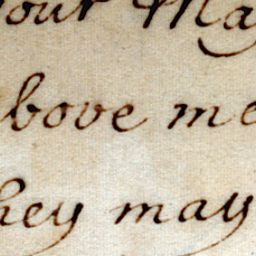 our Ma
bove me
hey may